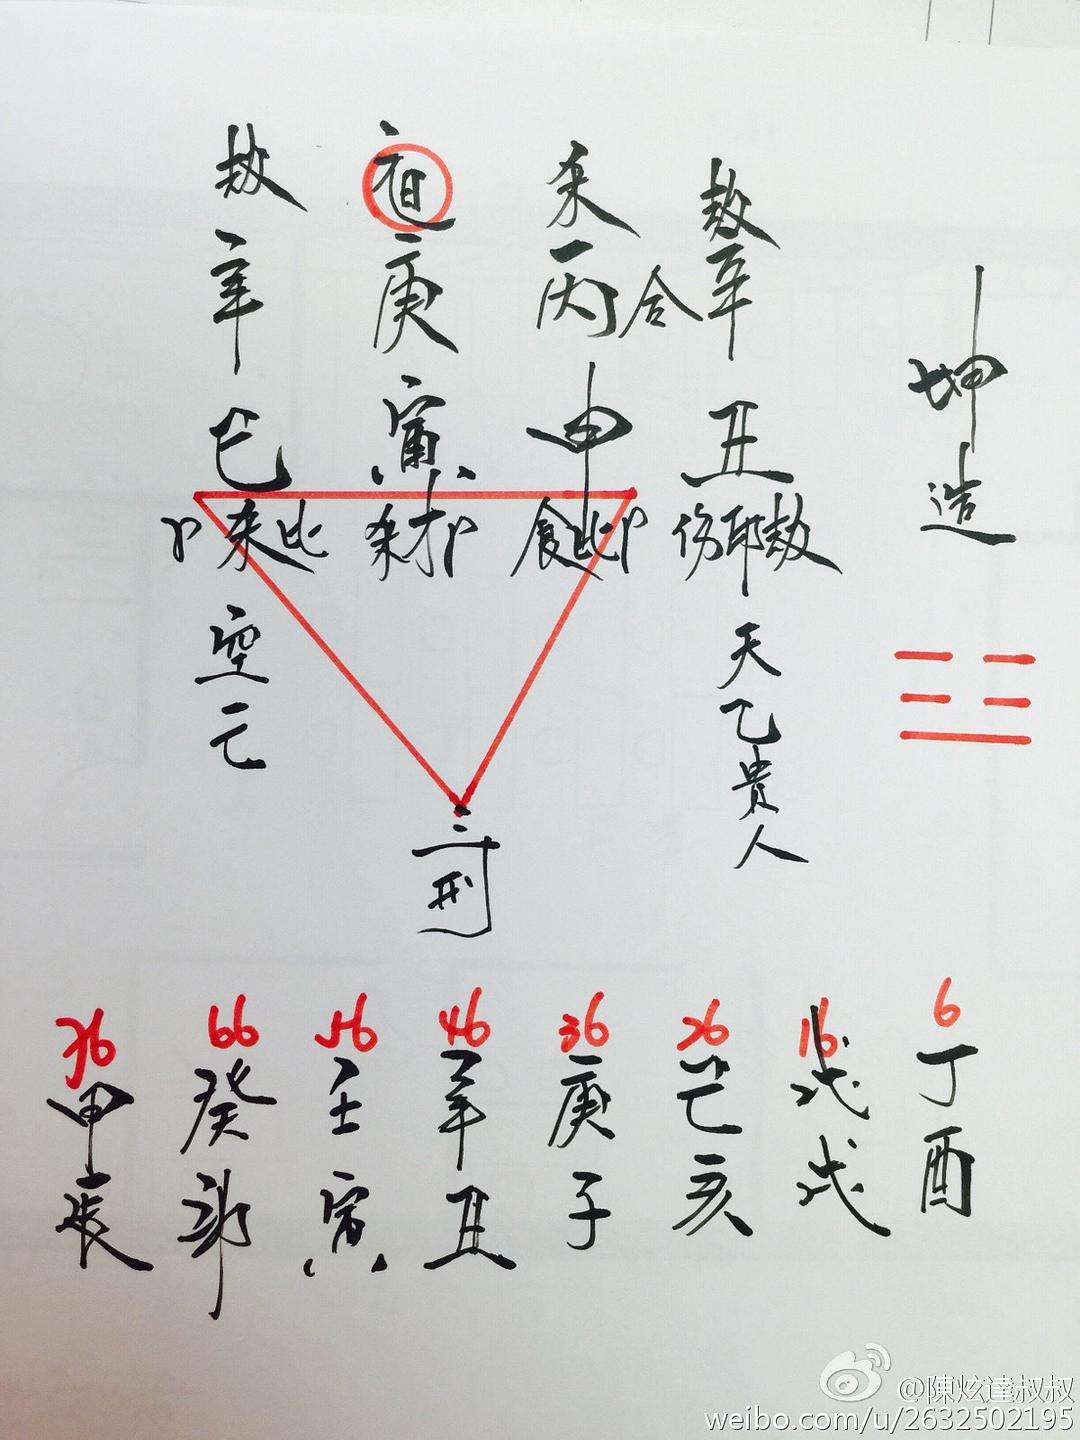 坤造
辛丑
伤印
天乙貴人
合
杀丙申
食比卩
庚寅
杀才卩
辛巳
卩杀比
空亡
三刑
6
丁酉
16
戊戌
26
己亥
36
庚子
46
辛丑
56
壬寅
66
癸卯
76
甲辰
@陳炫達叔叔
weibo.com/u/2632502195